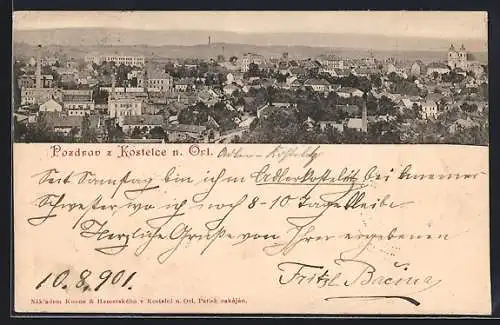 Pozdrav z Kostelce n. Orl. Adler-Kosteletz
Seit Samstag bin ich in Adlerkosteletz bei meiner
Schwester wo ich noch 8-10 Tage bleibe
Herzliche Grüße von Ihrer ergebenen
10.8.901. Fritzl
Nákladem Kosny & Hamerského v Kostelci n. Orl. Patisk zakázán.